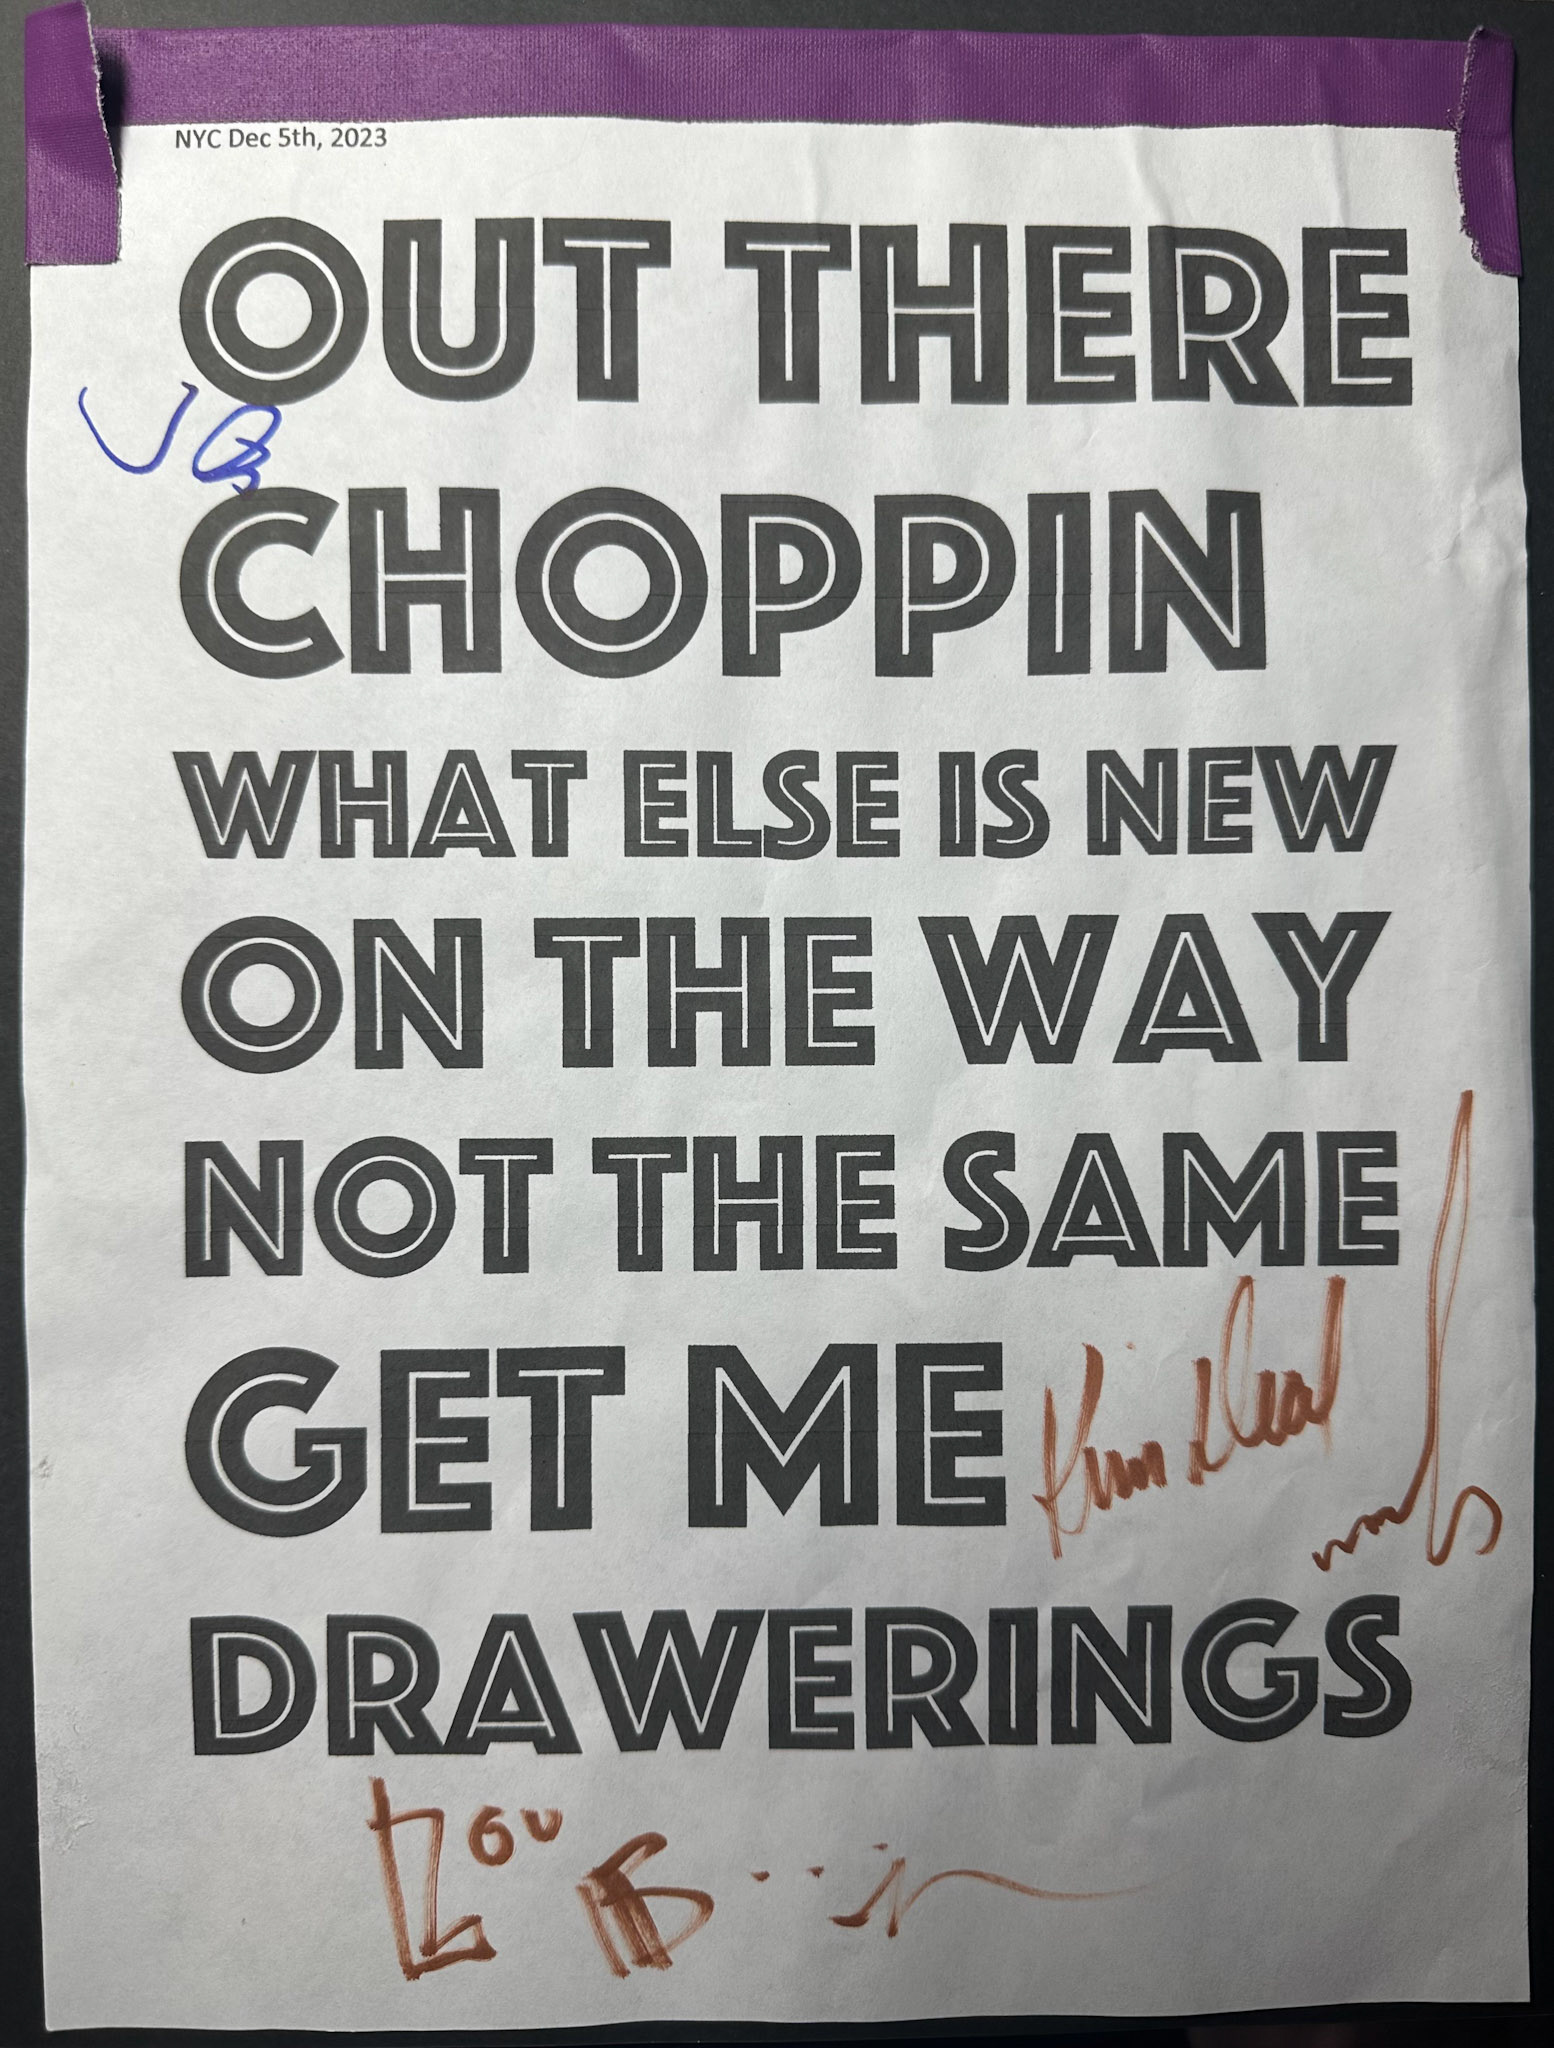 NYC Dec 5th, 2023
OUT THERE
CHOPPIN
WHAT ELSE IS NEW
ON THE WAY
NOT THE SAME
GET ME
Kim Deal
DRAWERINGS
Lou B